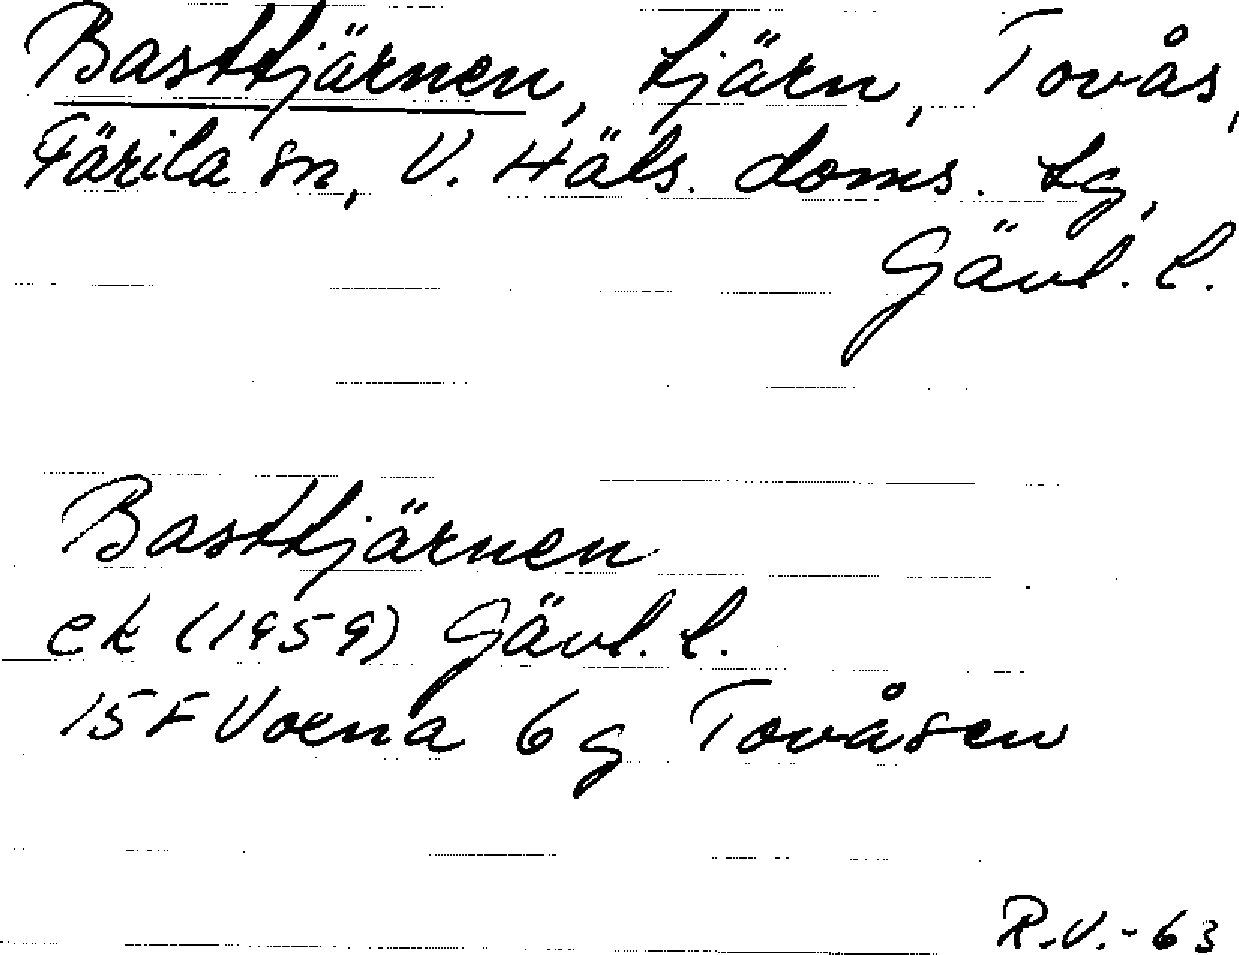 Basttjärnen, tjärn, Tovås,
Färila sn, V. Häls. doms. tg,
Gävl. l.
Basttjärnen
ek (1959) Gävl. l.
15 F Voxna 6 g Tovåsen
R.V.-63